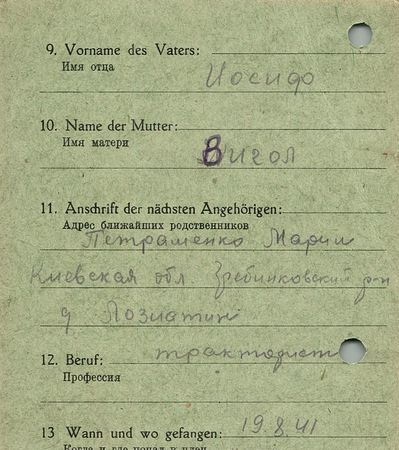 9. Vorname des Vaters:
Имя отца
Иосифо
10. Name der Mutter:
Имя матери
Вигол
11. Anschrift der nächsten Angehörigen:
Адрес ближайших родственников
Петраменко Марии
Киевская обл. Гребинковский р-н
д Лозиатин
12. Beruf:
тракторист
Профессия
13 Wann und wo gefangen: 19.8.41
Когда и где попал в плен